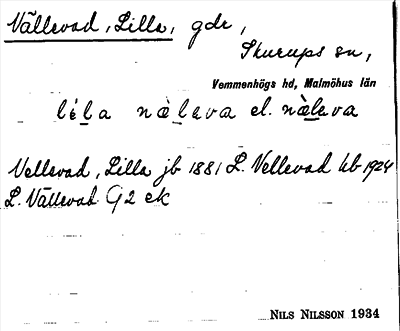 Vällevad, Lilla, gdr,
Skurups sn,
Vemmenhögs hd, Malmöhus län
lìla nàleva el. nàleva
Vellevad, Lilla jb 1881 L. Vellevad kb 1924
L. Vällevad G2 ek
NILS NILSSON 1934